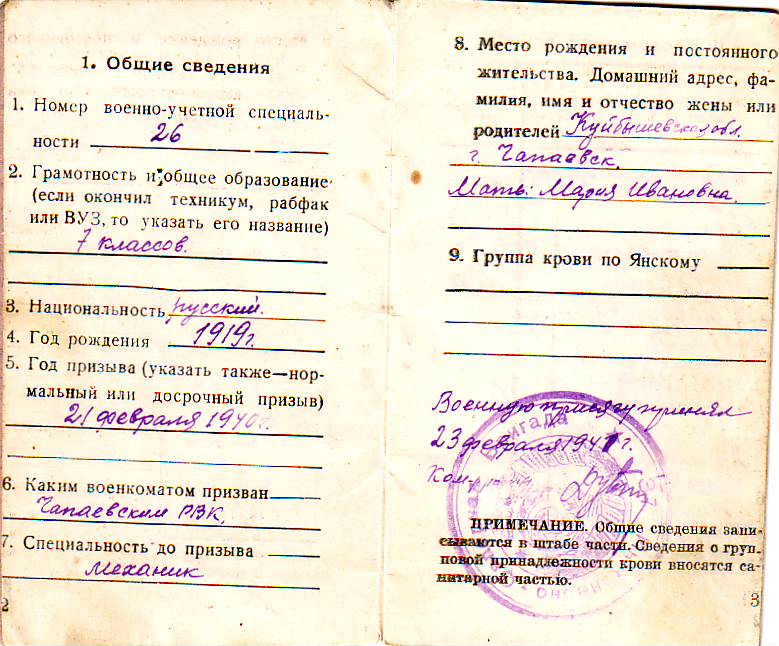 1. Общие сведения
1. Номер военно-учетной специаль-
ности 26
2. Грамотность и общее образование
(если окончил техникум, рабфак
или ВУЗ, то указать его название)
7 классов.
3. Национальность русский.
4. Год рождения 1919г.
5. Год призыва (указать также—нор-
мальный или досрочный призыв)
21 февраля 1940г.
6. Каким военкоматом призван
Чапаевским РВК,
7. Специальность до призыва
механик
2
8. Место рождения и постоянного
жительства. Домашний адрес, фа-
милия, имя и отчество жены или
родителей Куйбышевская обл.
г. Чапаевск,
Мать: Мария Ивановна.
9. Группа крови по Янскому
Военную присягу принял
23 февраля 1941г.
Ком-р
бригада
ПРИМЕЧАНИЕ. Общие сведения запи-
сываются в штабе части. Сведения о груп-
повой принадлежности крови вносятся са-
нитарной частью.
3